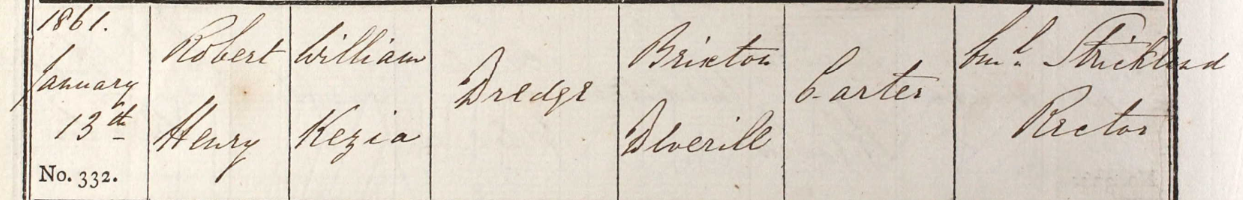 1861.
January
13th
No. 332.
Robert
Henry
William
Kezia
Dredge
Brixton
Deverill
Carter
Strickland
Rector